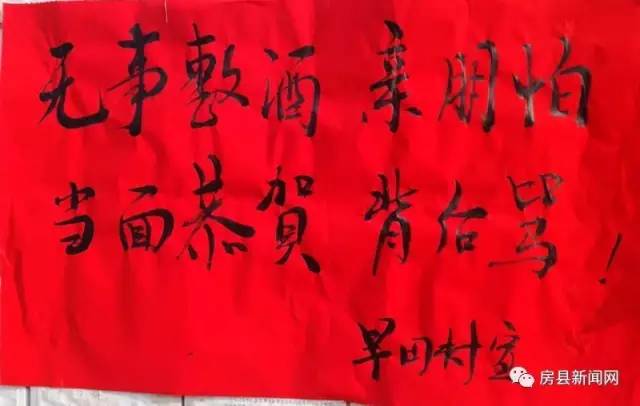 无事整酒 亲朋怕
当面恭賀 背后骂！
早田村宣
房县新闻网